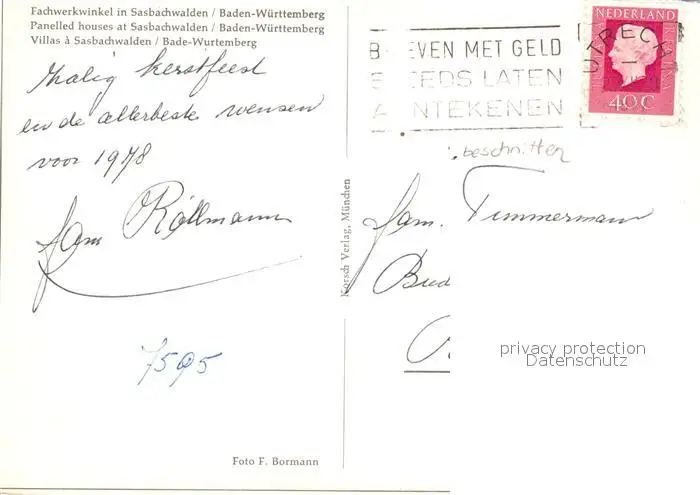 Fachwerkwinkel in Sasbachwalden / Baden-Württemberg
Panelled houses at Sasbachwalden / Baden-Württemberg
Villas à Sasbachwalden / Bade-Wurtemberg
Zalig Kerstfeest
en de allerbeste wensen
voor 1978
fam Röllmann
7595
Foto F. Bormann
Korsch Verlag, München
NEDERLAND
40 C
UTRECH
B EVEN MET GELD
EEDS LATEN
A NTEKENEN
beschnitten
fam. Timmermann
privacy protection
Datenschutz